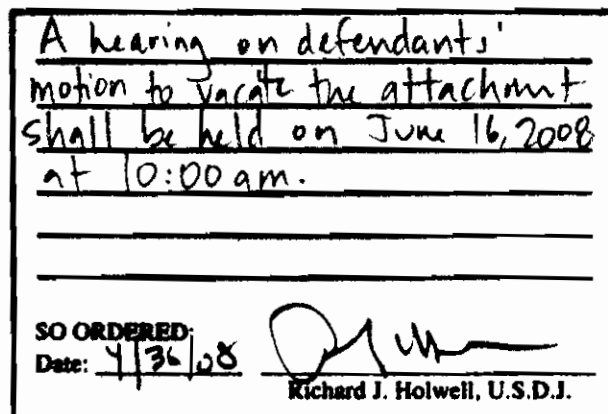 A hearing on defendants'
motion to vacate the attachment
shall be held on June 16, 2008
at 10:00 am.
SO ORDERED:
Date:
Richard J. Holwell, U.S.D.J.